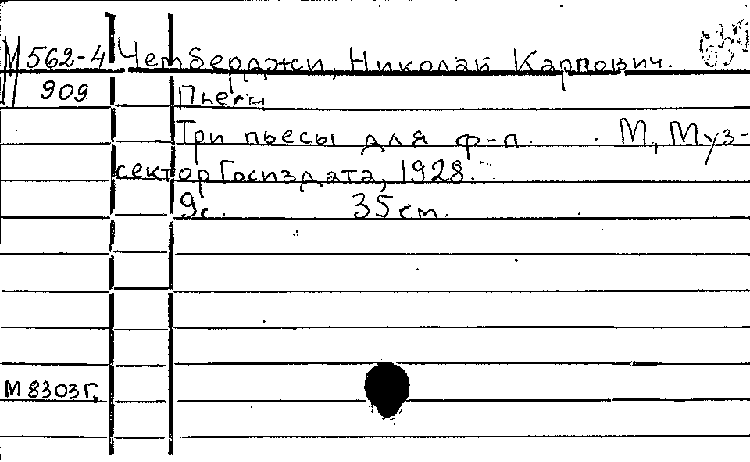 М 562-4 Чемберджи, Николай Карпович.
909 Пьесы
Три пьесы для ф-п. М, Муз-
сектор Госиздата, 1928.
9с. 35 cm.
М 8303 г.